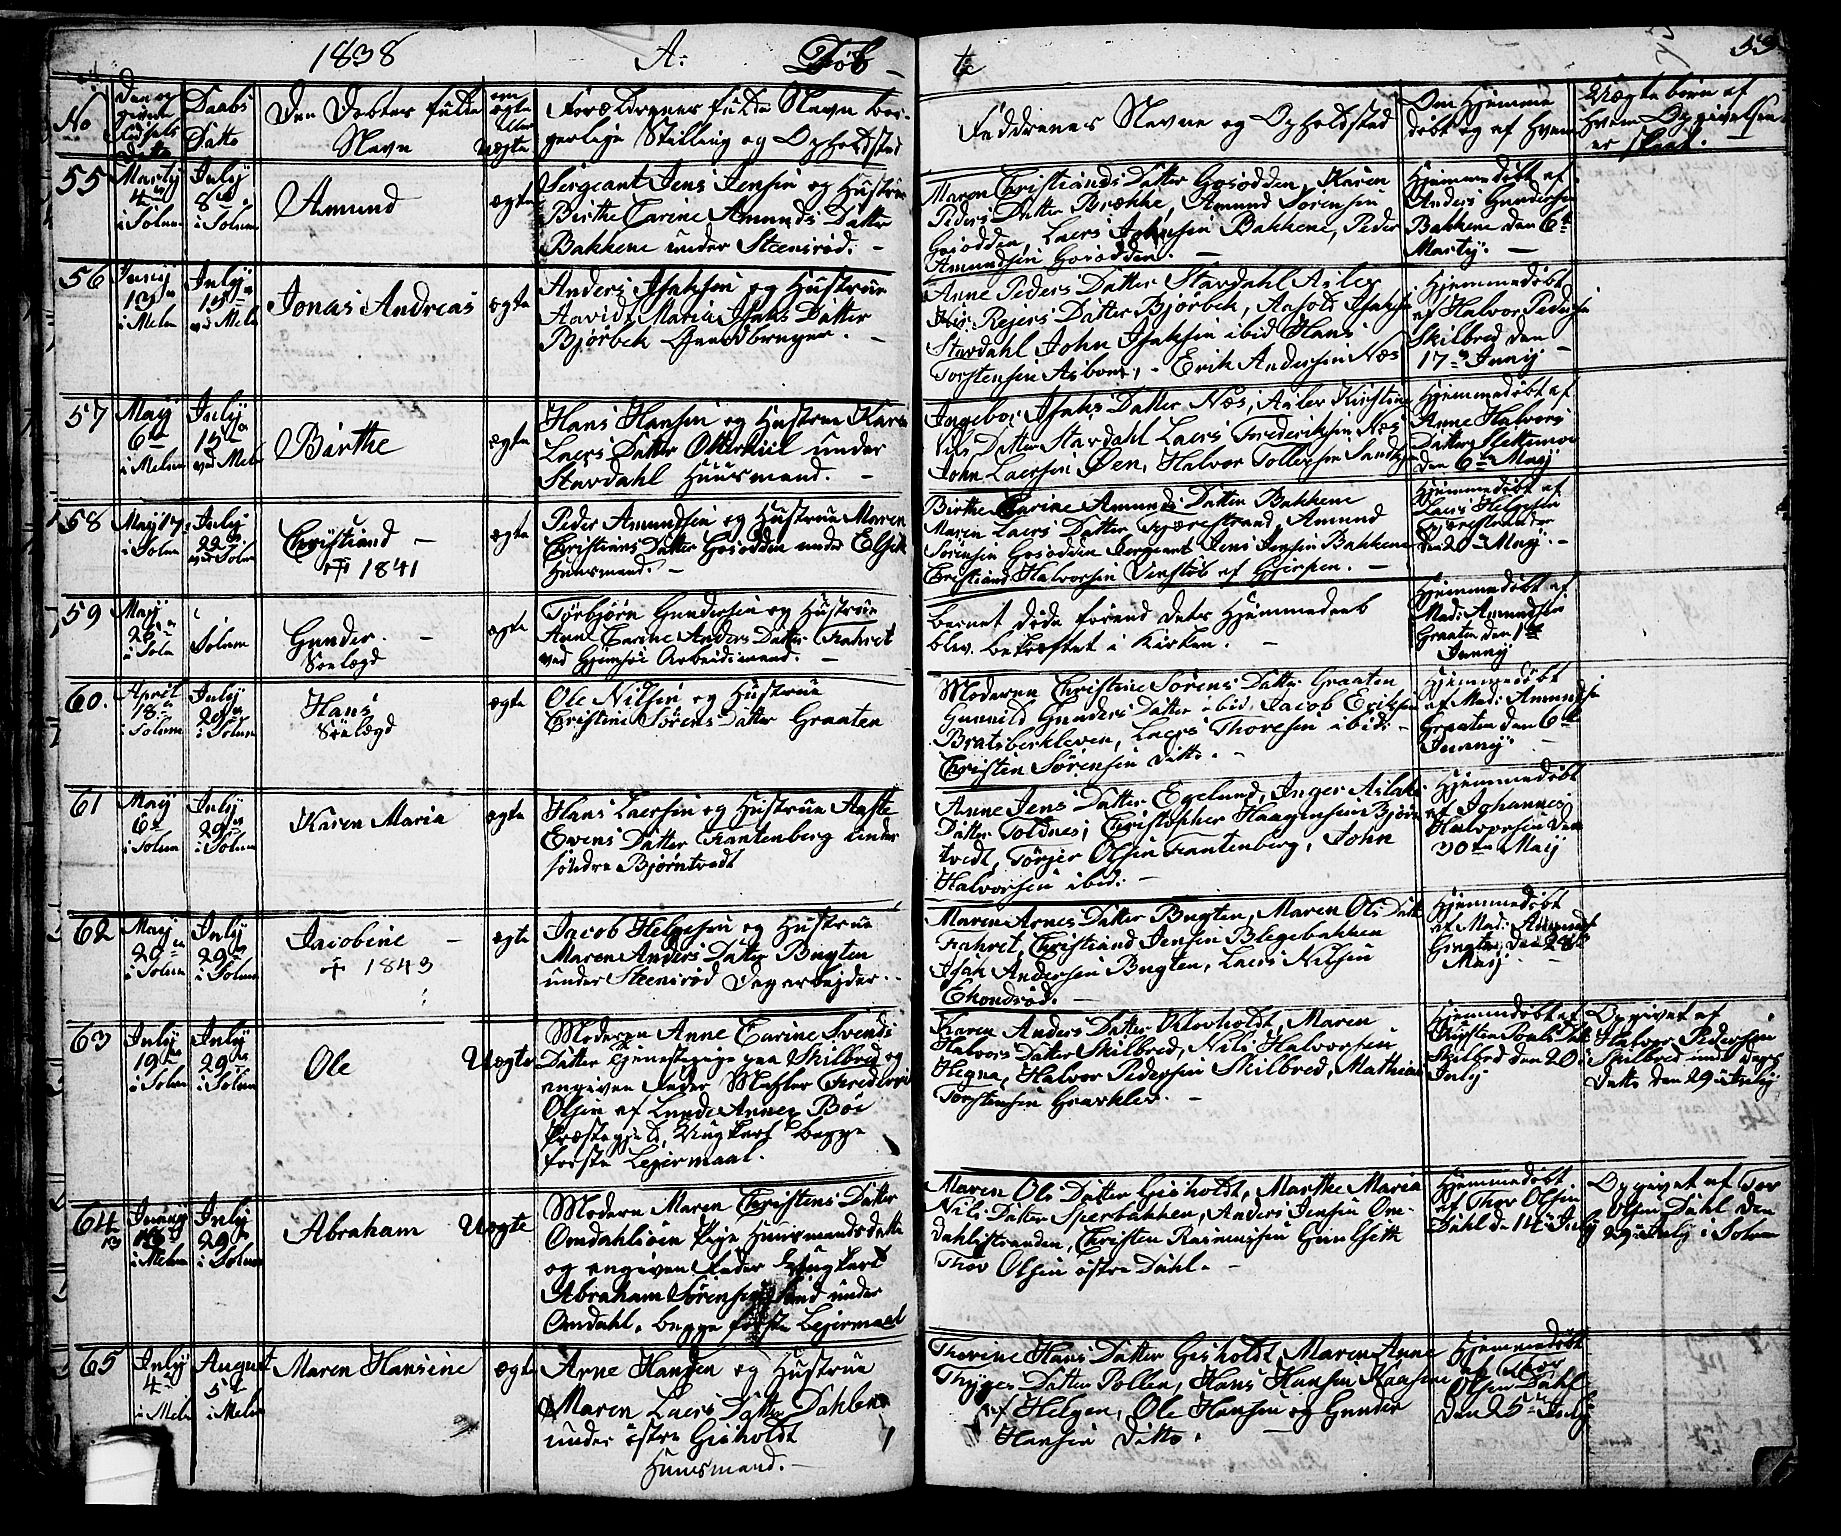 1838 A: Døb-
te 53
No
Den an
givne
Fødsels
Datto
Daabs
Datto
Den Døbtes fulde
Navn
om
ægte
eller
uægte
Forældrenes fulde Navn bor-
gerlige Stilling og Opholdsted
Faddrenes Navne og Opholdsted
Om Hjemme
døbt og af hvem
Uægte børn af
hvem Opgivelsen
er skeet.
55
Marty
4de
i Solum
July
8de
i Solum
Amund
ægte
Sergeant Jens Jensen og Hustrue
Birthe Carine Amunds Datter
Bakkene under Steensrød. -
Maren Christiands Datter Gosodden, Karen
Peders Datter Brække, Amund Sørensen
Gosodden, Laers Johnsen Bakkene, Peder
Amundsen Gosodden. -
Hjemmedøbt af
Anders Gundersen
Bakkene den 6te
Marty. -
56
Juny
i Melum
July
15de
ved Melum
Jonas Andreas
ægte
Anders Isaksen og Hustrue
Maria Isaks Datter
Bjørbek Gaardbruger. -
Anne Peders Datter Stavdahl Asler
Rejers Datter Bjørbek, Isaksen
Stavdahl John Isaksen ibid Hans
Torstensen Asbom, - Erik Andersen Næs
Hjemmedøbt
af Halvor Pedersen
Skilbred den
17de Juny -
57
May
6te
i Melum
July
15de
ved Melum
Birthe
ægte
Hans Hansen og Hustrue Karen
Laers Datter Otterkiil under
Stavdahl Huusmand. -
Ingebor Isaks Datter Næs, Asler Kirsting
Nils Datter Stavdahl Laers Frederiksen Næs
John Laersen Øen, Halvor Tollefsen
Hjemmedøbt af
Anne Halvors
Datter Slettemoe
den 6te May
58
May 17de
i Solum
July
22de
ved Solum
Christiand -
✝ 1841
ægte
Peder Amundsen og Hustrue Maren
Christians Datter Gosodden under
Huusmand. -
Birthe Carine Amunds Datter Bakkene
Maren Laers Datter Fjærestrand, Amund
Sørensen Gosodden Sergeant Jens Jensen Bakkene
Christiand Halvorsen Venstøb af Gjerpen. -
Hjemmedøbt af
Laers Helgesen
Fjærestrand
den 20de May. -
59
May
26de
i Solum
Solum
Gunder. -
Søelægd
ægte
Torbjørn Gundersen og Hustrue
Ann Carine Anders Datter Frahret
ved Gjemsøe Arbeidsmand. -
barnet døde forend dets Hjemmedaab
blev bekræftet i Kirken. -
Hjemmedøbt af
Mads Amundsen
Graaten den 1ste
Juny
60.
April
18de
i Solum
July
29de
i Solum
Hans
Søelægd
ægte
Ole Nilsen og Hustrue
Christine Sørens Datter Graaten
Moderen Christine Sørens Datter Graaten
Gunnild Gunders Datter ibid, Jacob Eriksen
Bratsberkleven, Laers Thoresen ibid: -
Christen Sørensen ditto. -
Hjemmedøbt
af Mads Amundsen
Graaten den 6te
Juny -
61
May
6te
i Solum
July
29de
i Solum
Karen Maria
ægte
Hans Laersen og Hustrue Aaste
Evens Datter Frantenberg under
søndre Bjørntvedt
Anne Jens Datter Egelund, Inger Aslaks
Datter Toldnes, Christopher Haagensen Bjørn
tvedt, Törger Olsen Frantenberg, John
Halvorsen ibid: -
Hjemmedøbt
af Johannes
Halvorsen den
20de May
62
May
20de
i Solum
July
29de
i Solum
Jacobine -
✝ 1843
ægte
Jacob Helgesen og Hustrue
Maren Anders Datter Bugten
under Steensrød Dagarbejder. -
Maren Arnes Datter Bugten, Maren Ols Datter
Frahret, Christiand Jensen Blegebakken
Isak Andersen Bugten, Laers Nilsen
Ekondrød. -
Hjemmedøbt
af Mads Amundsen
Graaten, den 28de
May. -
63
July
19de
i Solum
July
29de
i Solum
Ole
Uægte
Moderen Anne Carine Svends
Datter Tjenestepige paa Skilbred og
angiven Fader Mahler Fredlov
Olsen af Lunde Annex Bøe
Præstegjeld, Ungkarl begge
første Lejermaal.
Karen Anders Datter Klovholdt, Maren
Halvors Datter Skilbred, Nils Halvorsen
Hegna, Halvor Pedersen Skilbred, Mathias
Torstensen Graveklev. -
Hjemmedøbt af
Kirsten Pouls Datter
Skilbred den 20de
July
Opgivet af
Halvor Pedersen
Skilbred under Dags
Datto den 29de July
64
13
Juny
13
i Melum
July
29de
i Solum
Abraham
Uægte
Modern Maren Christens Datter
Omdahlsøen Pige Huusmandsdatter
og angiven Fader Ungkarl
Abraham Sørensen Sand under
Omdahl. begge første Lejermaal
Maren Ols Datter Gisholdt, Marthe Maria
Nils Datter Sperbakken, Anders Jensen Om-
dahlstranden, Christen Rasmussen Gunlseth
Thor Olsen østre Dahl. -
Hjemmedøbt
af Thor Olsen
Dahl de 14de July
Opgivet af Tor
Olsen Dahl den
29de July i Solum
65
July
4de
i Melum
August
5te
i Melum
Maren Hansine
ægte
Arne Hansen og Hustrue
Maren Laers Datter Dahlen
under østre Gisholdt
Huusmand. -
Thorine Hans Datter Gisholdt, Maren Anne
Thyges Datter Pollen, Hans Hansen Kaasene
af Helgen, Ole Hansen og Gunder
Hansen ditto.
Hjemmedøbt
af Thor
Olsen Dahl
den 25de July